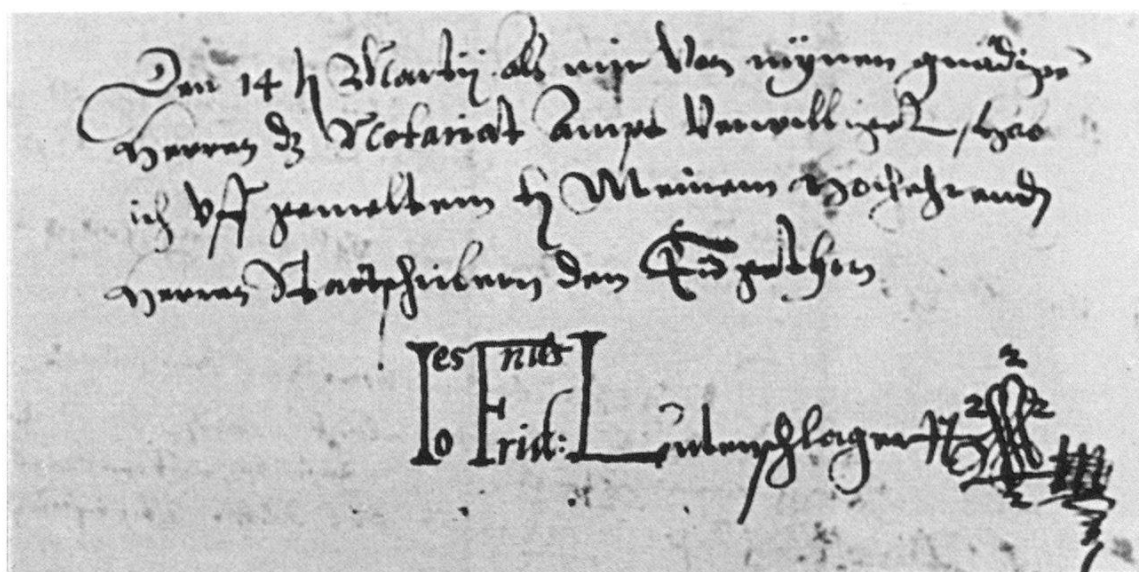 Den 14 Martij als mir Von mynen gnädigen
Herren dz Notariat Ampt Verwilliget, hab
ich vff gemeltem Meinem Hochehrend
Herren Stattschribern den Eid gethon
Ies nus
Io Frid: Lutenschlager N